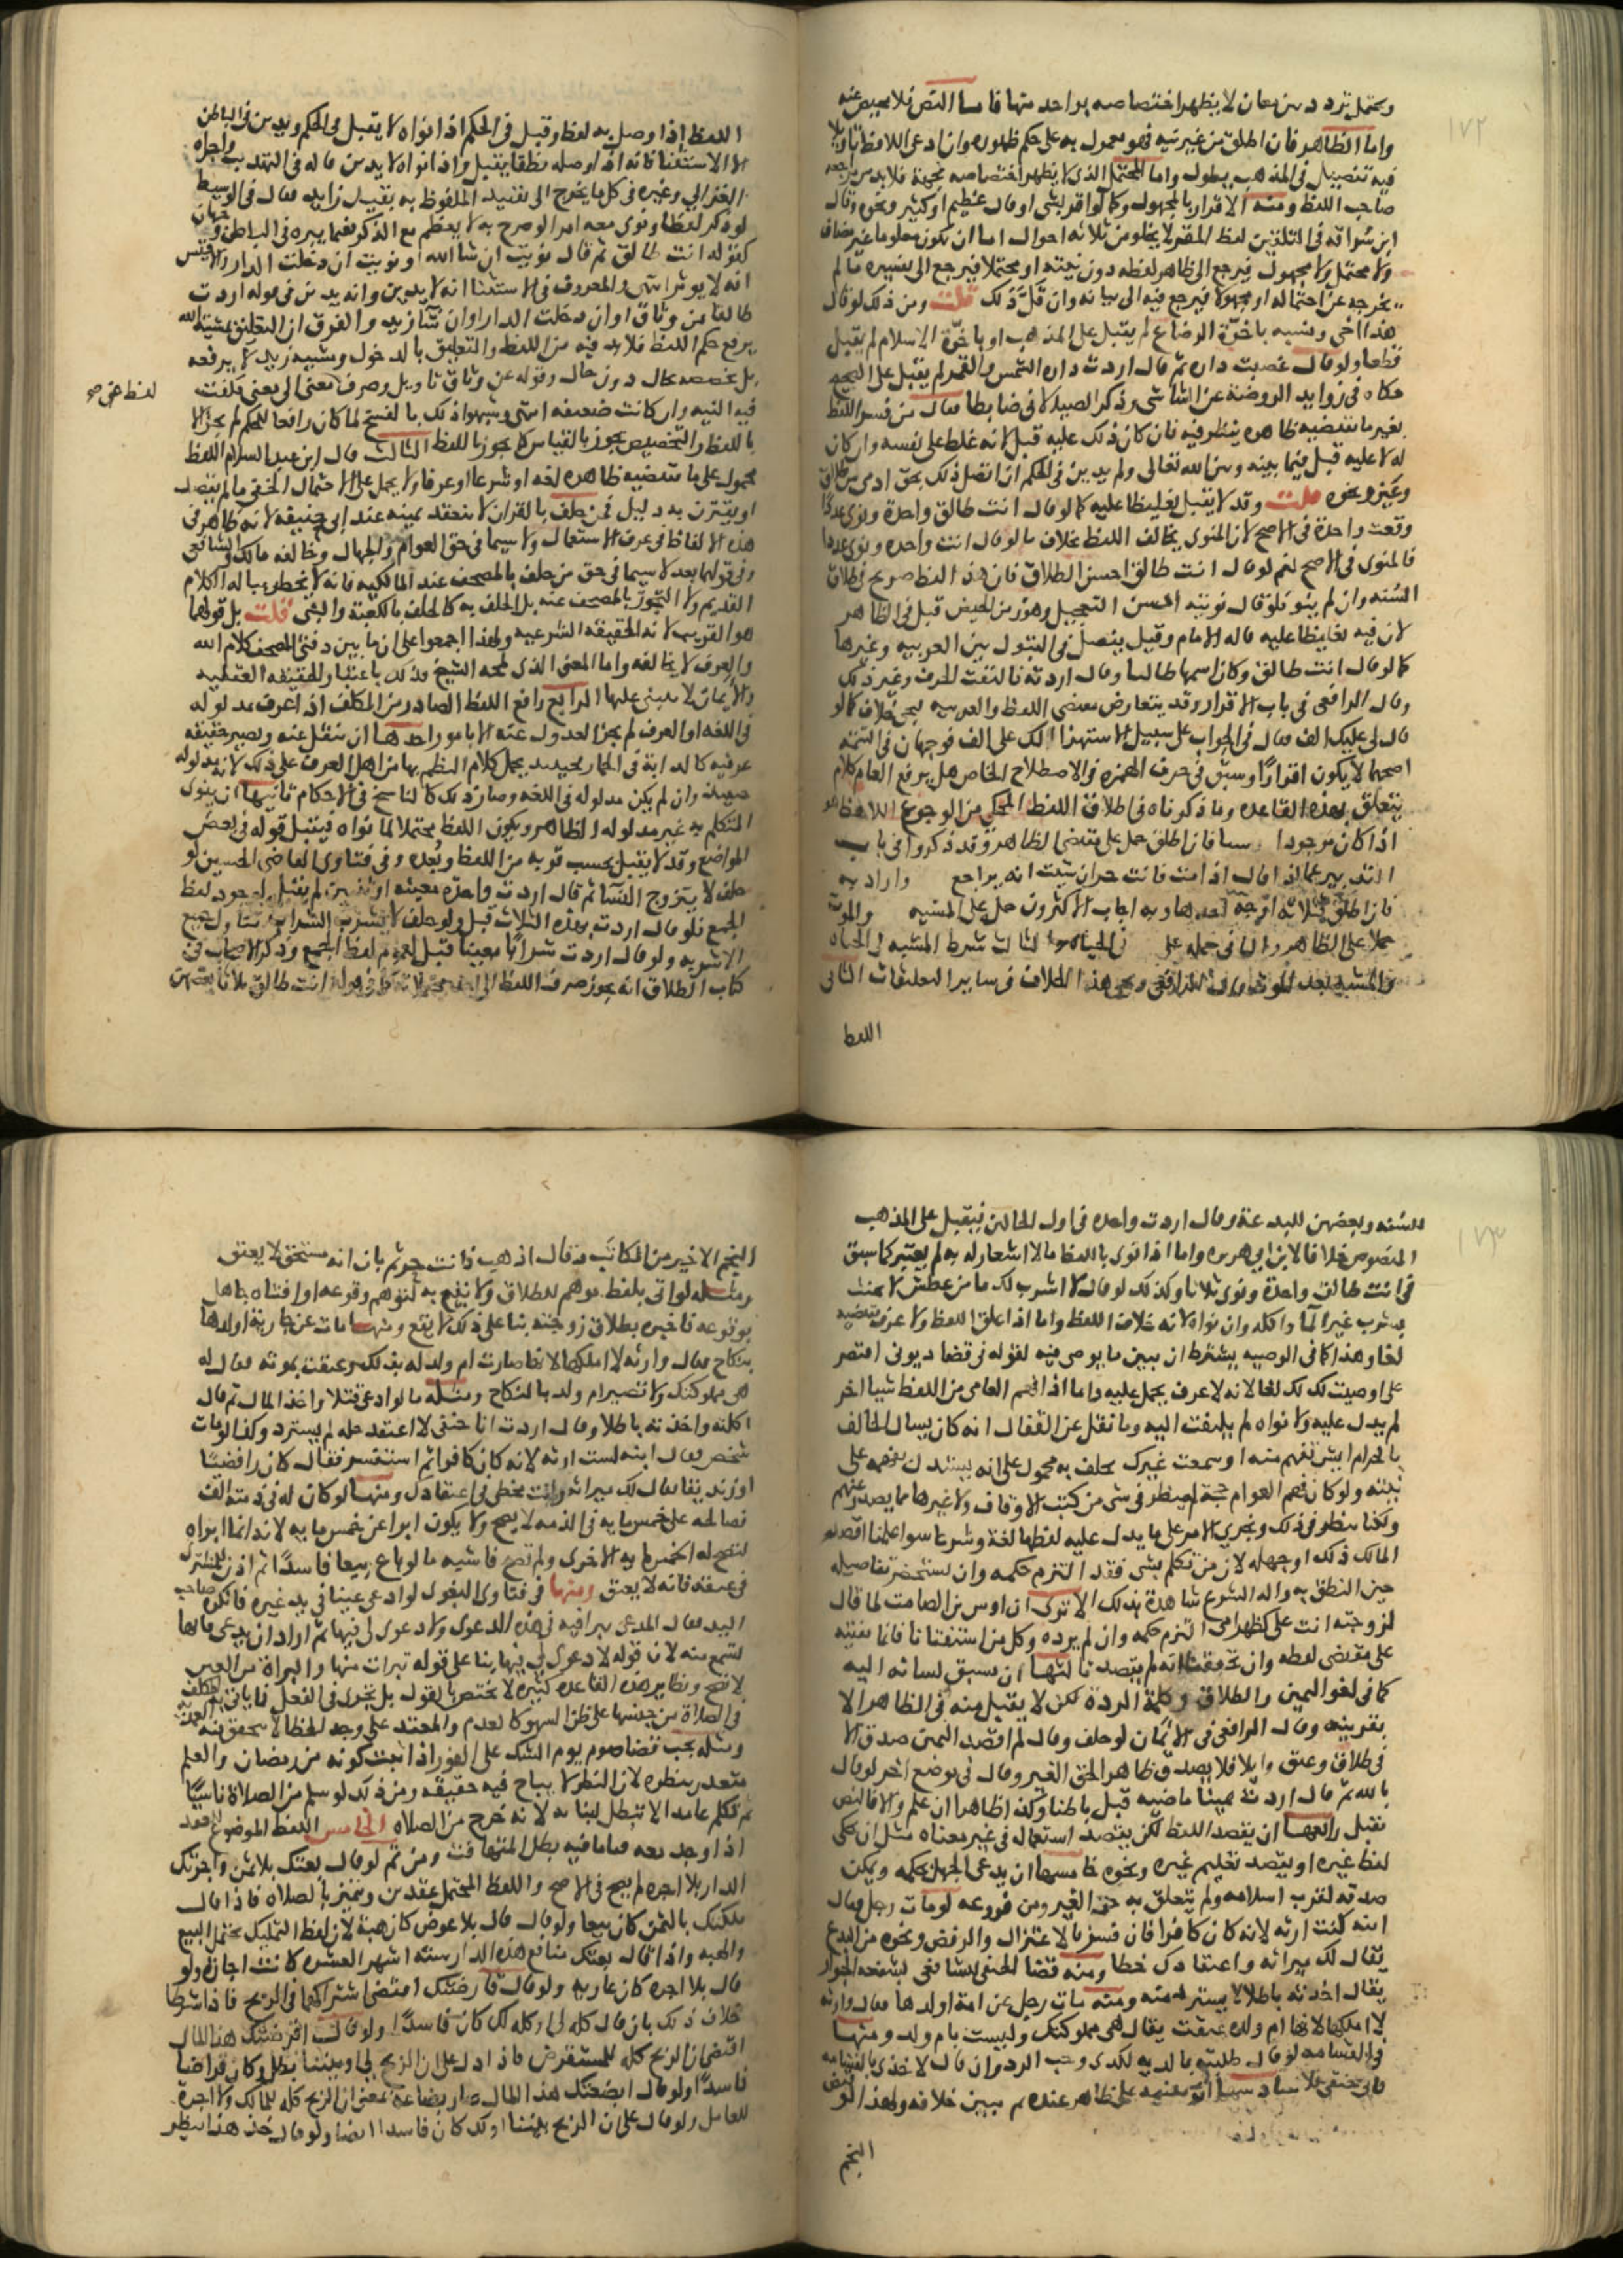 ١٧٢
ويحتمل تردد بين معان لا يظهر اختصاصه بواحد منها فاما النص فلا محيص عنه
واما الظاهر فان اطلق من غير نيه فهو محمول به على حكم ظهوره وان ادعى اللافظ تاويلا
فيه تفصيل في المذهب يطول واما المحتمل الذي لا يظهر اختصاصه بجهة فلا بد من مراجعه
صاحب اللفظ ومنه الاقرار بالمجهول وكما لو اقر بشي او قال عظيم او كثير ونحوه وقال
ابن سراقه في التلقين لفظ المقر لا يخلو من ثلاثه احوال اما ان يكون معلوما غير مضاف
ولا محتمل ولا مجهول فيرجع الى ظاهر لفظه دون نيته او محتملا فيرجع الى تفسيره ما لم
يخرجه عن احتماله او مجهولا فيرجع فيه الى بيانه وان قل ذلك قلت ومن ذلك لو قال
هذا اخي وفسره باخوة الرضاع لم يقبل على المذهب او باخوة الاسلام لم يقبل
قطعا ولو قال غصبت داره ثم قال اردت داره الشمس والقمر لم يقبل على الصحيح
حكاه في زوايد الروضة عن الشاشي وذكر الصيدلاني ضابطا فقال من فسر اللفظ
بغير ما يقتضيه ظاهره ينظر فيه فان كان ذلك عليه قبل لانه غلظ على نفسه وان كان
له لا عليه قبل فيما بينه وبين الله تعالى ولم يدين في الحكم ان اتصل ذلك بحق ادمي من طلاق
وعتق ونحوه قلت وقد لا يقبل تغليظا عليه كما لو قال انت طالق واحدة ونوى عددا
وقعت واحدة في الاصح لان المنوي يخالف اللفظ بخلاف ما لو قال انت واحده ونوى عددا
فالمنوي في الاصح نعم لو قال انت طالق احسن الطلاق فان هذا اللفظ صريح في طلاق
السنه وان لم ينو فلو قال نويت احسن التعجيل وهو زمن الحيض قبل في الظاهر
لان فيه تغليظا عليه قاله الامام وقيل يفصل في القبول بين العربيه وغيرها
كما لو قال انت طالق وكان اسمها طالبا وقال اردته فالتفت الحرف وغير ذلك
وقال الرافعي في باب الاقرار وقد يتعارض مقتضى اللفظ والقرينه فيجي خلاف كما لو
قال لي عليك الف فقال في الجواب على سبيل الاستهزا لك علي الف فوجهان في التتمه
اصحهما لا يكون اقرارا وسبق في حرف الهمزه في الاصطلاح الخاص هل يرفع العام كلام
يتعلق بهذه القاعده وما ذكرناه في اطلاق اللفظ المحكي من الرجوع اللافظ هو
اذا كان موجودا فان اطلق حمل على مقتضى الظاهر وقد ذكروا في باب
التدبير فيما اذا قال اذا مت فانت حر ان شيت انه يراجع واراد به
فان اطلق فثلاثه اوجه احدها وبه اجاب الاكثرون حمل على المشيه والموت
حملا على الظاهر والثاني حمله على في الحياه والثالث شرط المشيه في الحياه
والمشيه بعد الموت قال الرافعي ويجي هذا الخلاف في ساير التعليقات الثاني
اللفظ
اللفظ اذا وصل به لفظ وقبل في الحكم اذا نواه لا يقبل في الحكم ويدين في الباطن
الا الاستثنا فانه اذا وصله نطقا يقبل واذا نواه لا يدين قاله في التهذيب واجراه
الغزالي وغيره في كل ما يخرج الى تقييد الملفوظ به بقيد زايد فقال في الوسيط
لو ذكر لفظا ونوى معه امرا لو صرح به لا يعظم مع الذكر ففيما يبره في الباطن وجهان
كقوله انت طالق ثم قال نويت ان شا الله او نويت ان دخلت الدار والاقيس
انه لا يوثر انتهى والمعروف في الاستثنا انه لا يدين وانه يدين في قوله اردت
طالقا من وثاق او ان دخلت الدار او ان شا زيد والفرق ان التعليق بمشية الله
يرفع حكم اللفظ فلا بد فيه من اللفظ والتعليق بالدخول ومشيه زيد لا يرفعه
بل يخصصه بحال دون حال وقوله عن وثاق تاويل وصرف معنى الى معنى فكفت
لفظ حتى صح
فيه النيه وان كانت ضعيفه انتهى وشبهوا ذلك بالفسخ لما كان رافعا للحكم لم يجز الا
باللفظ والتخصيص يجوز بالقياس كما يجوز باللفظ الثالث قال ابن عبد السلام اللفظ
محمول على ما يقتضيه ظاهره لغه او شرعا او عرفا ولا يحمل على الاحتمال الخفي ما لم يقصد
او يقترن به دليل فمن حلف بالقران لا تنعقد يمينه عند ابي حنيفه لانه ظاهر في
هذه الالفاظ في عرف الاستعمال ولا سيما في حق العوام والجهال وخالفه مالك والشافعي
وفي قولهما بعد لا سيما في حق من حلف بالمصحف عند المالكيه فانه لا يخطر بباله الكلام
القديم ولا التجوز بالمصحف عنه بل الحلف به كالحلف بالكعبة والنبي قلت بل قولهما
هو القريب لانه الحقيقه الشرعيه ولهذا اجمعوا على ان ما بين دفتي المصحف كلام الله
والعرف لا يخالفه واما المعنى الذي لمحه الشيخ فذلك باعتبار الحقيقه العقليه
والايمان لا تبنى عليها الرابع رافع اللفظ الصادر من المكلف اذا عرف مدلوله
في اللغه او العرف لم يجز العدول عنه الا بامور احدها ان ينقل عنه ويصير حقيقه
عرفيه كالدابة في الحمار فحينئذ يحمل كلام المتكلم بها من اهل العرف على ذلك لانه مدلوله
حينئذ وان لم يكن مدلوله في اللغه وصار ذلك كالناسخ في الاحكام ثانيها ان ينوي
المتكلم به غير مدلوله الظاهر ويكون اللفظ محتملا لما نواه فيقبل قوله في بعض
المواضع وقد لا يقبل بحسب قربه من اللفظ وبعده وفي فتاوى القاضي الحسين لو
حلف لا يتزوج النسا ثم قال اردت واحدة معينه او ثنتين لم يقبل لوجود لفظ
الجمع فلو قال اردت بهذه الثلاث قبل ولو حلف لا يشرب الشراب تناول جميع
الاشربه ولو قال اردت شرابا معينا قبل لعموم لفظ الجمع وذكر الاصحاب في
كتاب الطلاق انه يجوز صرف اللفظ الى قوله انت طالق ثلاثا بعضهن
١٧٣
للسنه وبعضهن للبدعة وقال اردت واحده في اول الحالين فيقبل على المذهب
المنصوص خلافا لابن ابي هريره واما اذا نوى باللفظ ما لا اشعار له به لم يعتبر كما سبق
في انت طالق واحدة ونوى ثلاثا وكذلك لو قال لا اشرب لك ما من عطش لا يحنث
بشرب غير الما واكله وان نواه لانه خلاف اللفظ واما اذا اطلق اللفظ ولا عرف يقتضيه
لغا وهذا كما في الوصيه يشترط ان يبين ما يوصي فيه لقوله في قضا ديوني اقتصر
على اوصيت لك لك لغا لانه لا عرف يحمل عليه واما اذا افهم العامي من اللفظ شيا اخر
لم يدل عليه ولا نواه لم يلتفت اليه وما نقل عن القفال انه كان يسال الحالف
بالحرام ايش تفهم منه او سمعت غيرك يحلف به محمول على انه يستدل بفهمه على
نيته ولو كان فهم العوام حجة لم ينظر في شي من كتب الاوقاف ولا غيرها مما يصدر عنهم
ولكنا ننظر في ذلك ويجري الامر على ما يدل عليه لفظها لغة وشرعا سوا علمنا ان قصد
المالك ذلك او جهله لان من تكلم بشي فقد التزم حكمه وان لم يستحضر تفاصيله
حين النطق به وادلة الشرع شاهدة بذلك الا ترى ان اوس بن الصامت لما قال
لزوجته انت علي كظهر امي التزم حكمه وان لم يرده وكل من استفتانا فانما نفتيه
على مقتضى لفظه وان تحققنا انه لم يقصد ثالثها ان يسبق لسانه اليه
كما في لغو اليمين والطلاق وكلمة الردة لكن لا يقبل منه في الظاهر الا
بقرينه وقال الرافعي في الايمان لو حلف وقال لم اقصد اليمين صدق الا
في طلاق وعتق وايلا فلا يصدق ظاهرا لحق الغير وقال في موضع اخر لو قال
بالله ثم قال اردت يمينا ماضيه قبل باطنا وكذا ظاهرا ان علم والا فالنص
يقبل رابعها ان يقصد اللفظ لكن يقصد استعماله في غير معناه مثل ان يحكي
لفظ غيره او يقصد تعليم غيره ونحوه خامسها ان يدعي الجهل بحكمه ويمكن
صدقه لقرب اسلامه ولم يتعلق به حق الغير ومن فروعه لو مات رجل فقال
ابنه لست ارثه لانه كان كافرا فان فسره بالاعتزال والرفض ونحوه من البدع
يقال لك ميراثه واعتقادك خطا ومنه قضا الحنفي للشافعي بشفعه الجوار
يقال اخذته باطلا لا يسترد منه ومنه مات رجل عن امة اولدها فقال وارثه
لا املكها لانها ام ولد عتقت يقال هي مملوكتك وليست بام ولد ومنها
في القسامه لو قال ظلمته بالديه لكذبي وجب الرد وان قال لاخذي بالقسامه
ظاهر عنده ثم يبين خلافه ولهذا لو قبض
النجم
النجم الاخير من المكاتب فقال اذهب فانت حر ثم بان انه مستحق لا يعتق
ومثله لو اتى بلفظ موهم للطلاق ولا يقع به لتوهم وقوعه او افتاه جاهل
بوقوعه فاخبره بطلاق زوجته بنا على ذلك لا يقع ومنها مات عن جارية اولدها
بنكاح فقال وارثه لا املكها لانها صارت ام ولد له بذلك وعتقت بموته فقال له
هي مملوكتك ولا تصير ام ولد بالنكاح ومثله ما لو ادعى قتلا واخذ المال ثم قال
اكلته واخذته باطلا وقال اردت انا حنفي لا اعتقد حله لم يسترد وكذا لو مات
شخص فقال ابنه لست ارثه لانه كان كافرا ثم استفسر فقال كان رافضيا
او زنديقا فقال لك ميراثه وانت مخطي في اعتقادك ومنها لو كان له في ذمته الف
فصالحه على خمس مايه في الذمه لا يصح ولا يكون ابرا عن خمس مايه لانه انما ابراه
لتصح له الخمس مايه الاخرى ولم تصح فاشبه ما لو باع بيعا فاسدا ثم اذن للمشتري
في عتقه فانه لا يعتق ومنها في فتاوى البغوي لو ادعى عينا في يد غيره فانكر صاحب
اليد فقال المدعي براقيه في هذه الدعوى ولا دعوى لي فيها ثم اراد ان يدعي فانها
تسمع منه لان قوله لا دعوى لي فيها بنا على قوله تبرات منها والبراة من العين
لا تصح ونظاير هذه القاعده كثيره لا تختص بالقول بل تجري في الفعل فما ياتي به المكلف
في الصلاة من جنسها على ظن السهو كالعدم والمعتد على وجه الخطا لا يتحقق فيه العمد
ومثله يجب قضا صوم يوم الشك على الفور اذا ثبت كونه من رمضان والعلم
متعذر بفطره لان الفطر لا يباح فيه حقيقه ومن ذلك لو سلم من الصلاة ناسيا
ثم تكلم عامدا لا تبطل لبنايه لانه خرج من الصلاه الخامس اللفظ الموضوع لعقد
اذا وجد معه ما ينافيه بطل المنتهافت ومن ثم لو قال بعتك بلا ثمن واجرتك
الدار بلا اجره لم يصح في الاصح واللفظ المحتمل عقدين ويتميز بالصلاه فاذا قال
ملكتك بالثمن كان بيعا ولو قال بلا عوض كان هبة لان لفظ التمليك يحتمل البيع
والهبه واذا قال بعتك منافع هذه الدار سنه اشهر العشره كانت اجارة ولو
قال بلا اجره كان عاريه ولو قال قارضتك اقتضى اشتراكهما في الربح فاذا شرطا
خلاف ذلك بان قال كله لي او كله لك كان فاسدا ولو قال اقرضتك هذا المال
اقتضى ان الربح كله للمستقرض فاذا دل على ان الربح لي او بيننا بطل وكان قراضا
فاسدا ولو قال ابضعتك هذا المال صار بضاعة بمعنى ان الربح كله للمالك ولا اجرة
للعامل ولو قال على ان الربح بيننا او لك كان فاسدا ايضا ولو قال خذ هذا ينظر